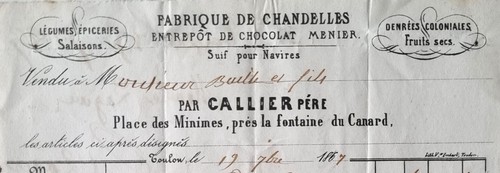 LÉGUMES, ÉPICERIES
Salaisons.
FABRIQUE DE CHANDELLES
ENTREPÔT DE CHOCOLAT MENIER.
Suif pour Navires
DENRÉES COLONIALES
Fruits secs.
Vendu à Monsieur et fils
PAR CALLIER PÉRE
Place des Minimes, près la fontaine du Canard,
les articles ci après désignés
Toulon, le 19 9bre 1867
M